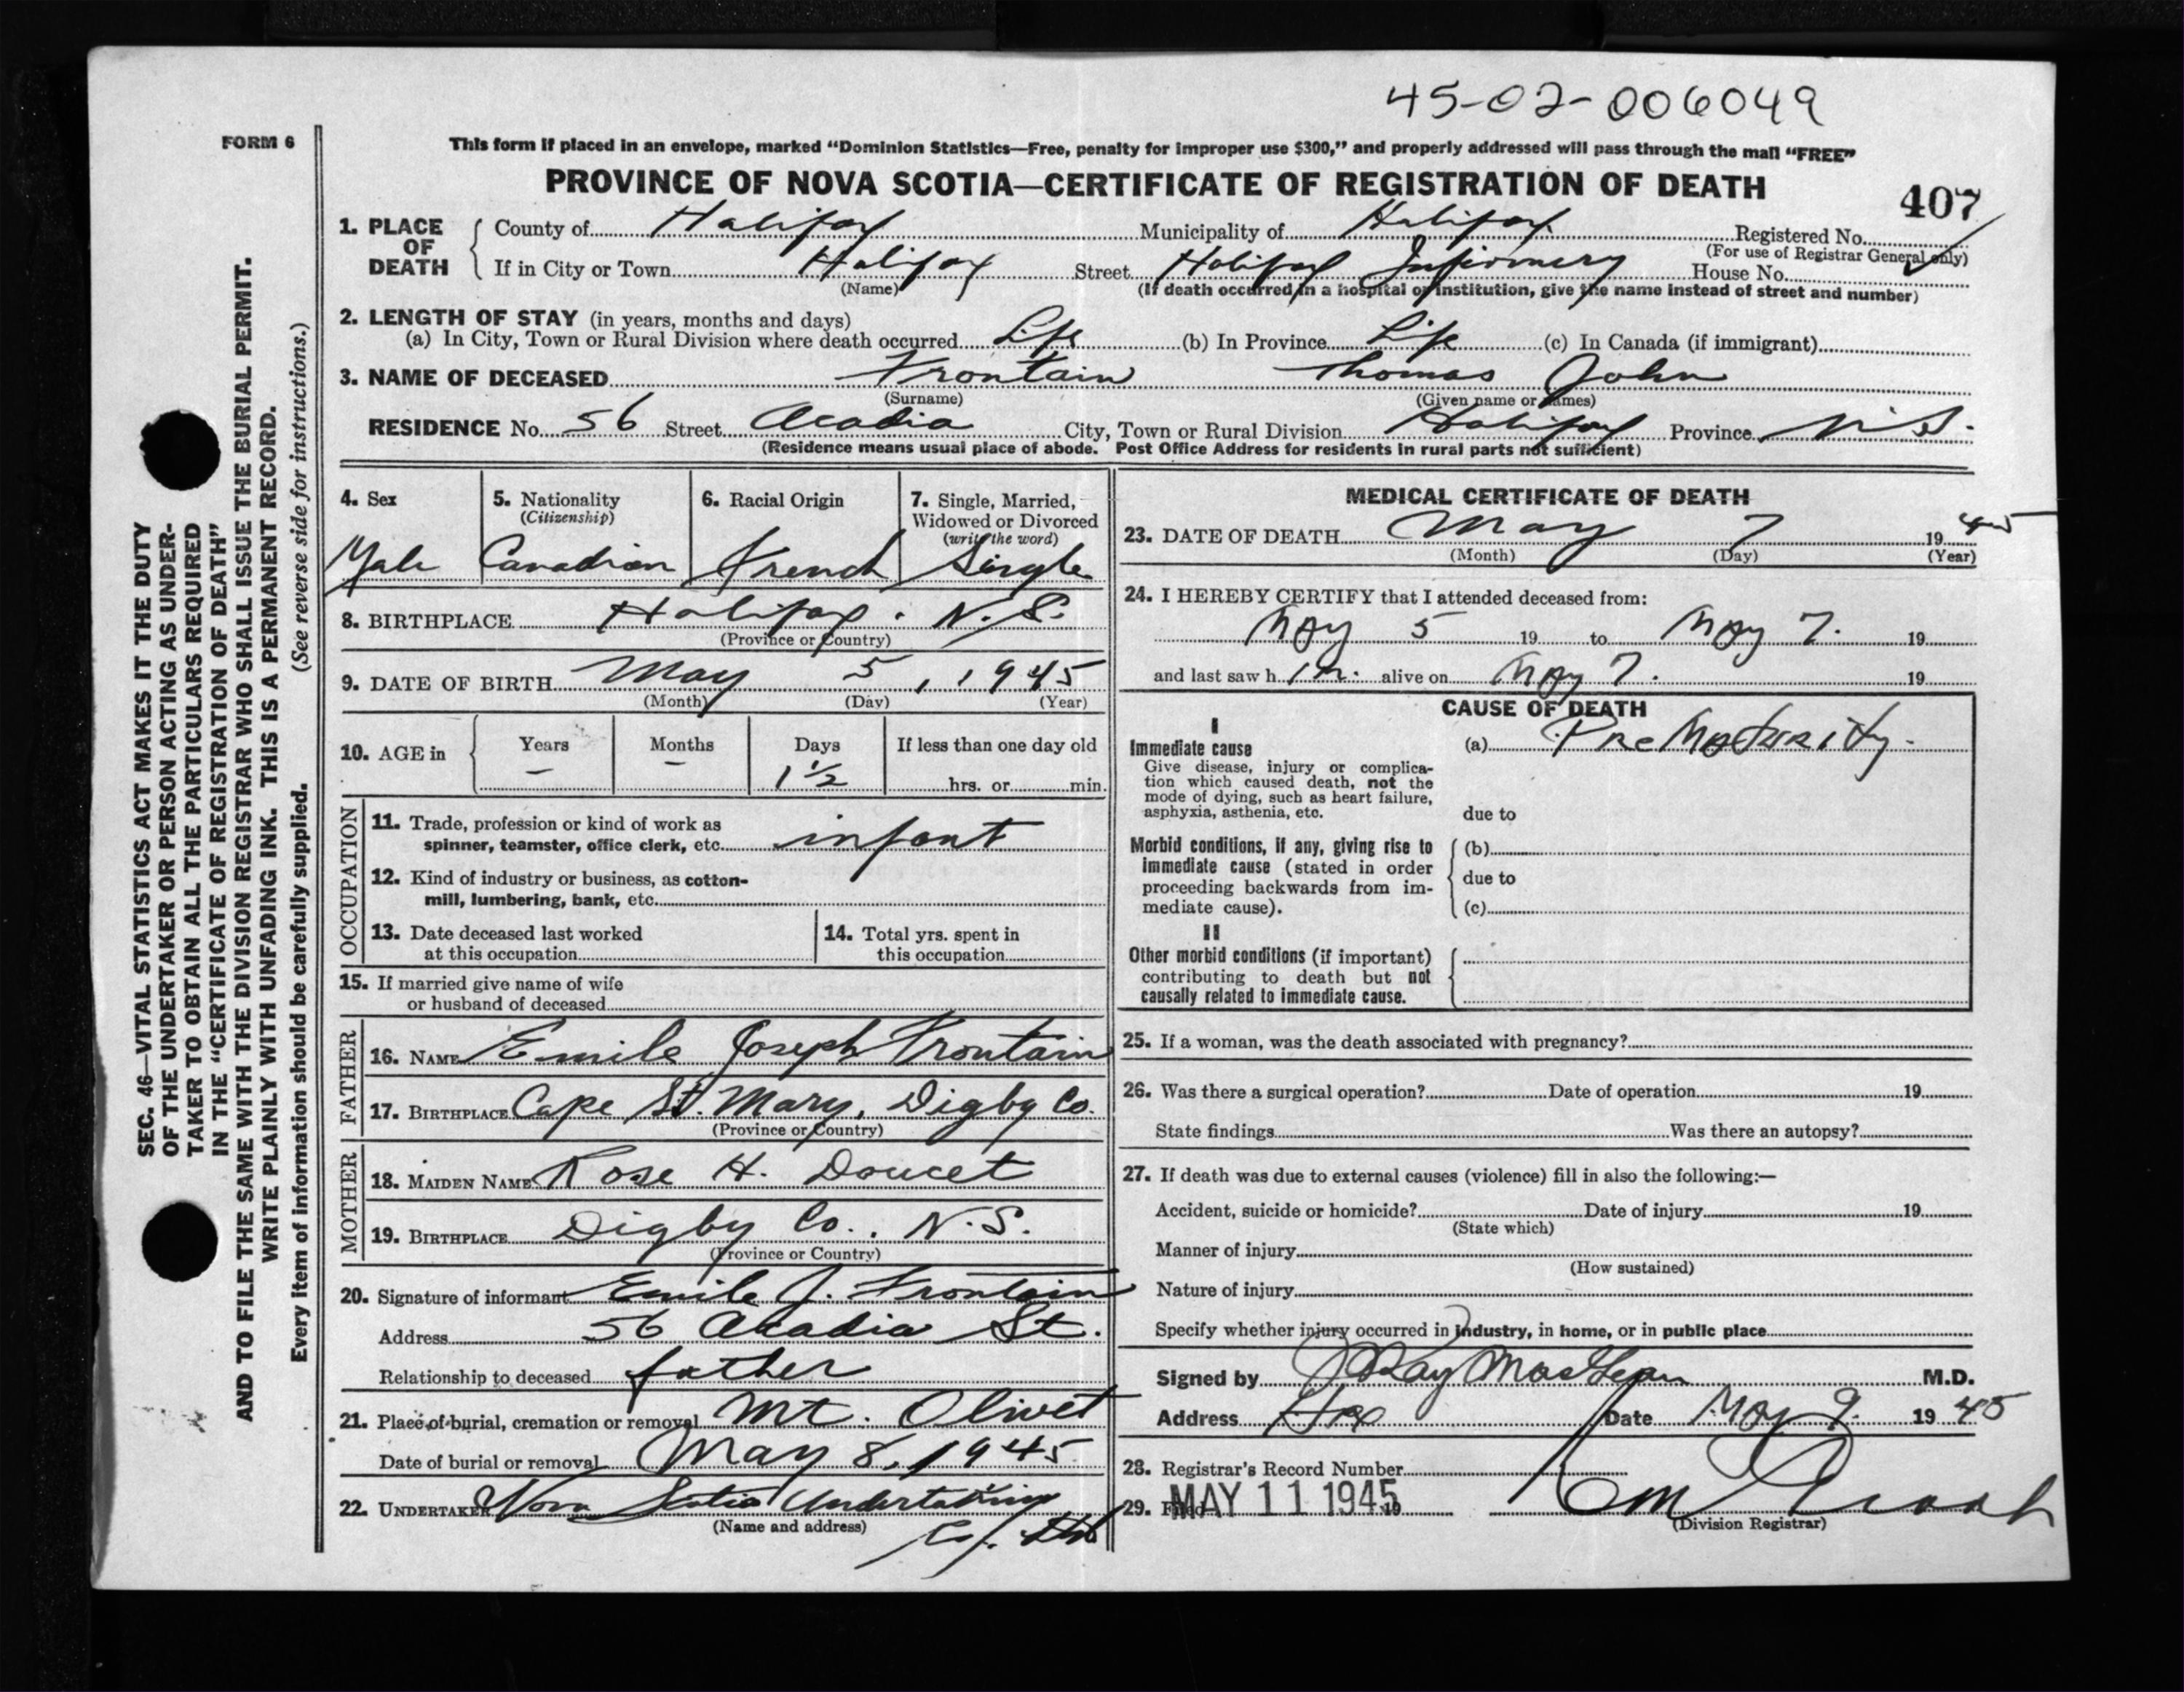 45-02-006049
FORM 6
This form if placed in an envelope, marked “Dominion Statistics—Free, penalty for improper use $300,” and properly addressed will pass through the mail “FREE”
PROVINCE OF NOVA SCOTIA—CERTIFICATE OF REGISTRATION OF DEATH
407
1. PLACE OF DEATH
County of Halifax Municipality of Halifax Registered No.
(For use of Registrar General only)
If in City or Town Halifax Street Halifax Infirmary House No.
(Name) (If death occurred in a hospital or institution, give the name instead of street and number)
2. LENGTH OF STAY (in years, months and days)
(a) In City, Town or Rural Division where death occurred Life (b) In Province Life (c) In Canada (if immigrant)
3. NAME OF DECEASED Frontain Thomas John
(Surname) (Given name or names)
RESIDENCE No. 56 Street Acadia City, Town or Rural Division Halifax Province N.S.
(Residence means usual place of abode. Post Office Address for residents in rural parts not sufficient)
4. Sex
Male
5. Nationality
(Citizenship)
Canadian
6. Racial Origin
French
7. Single, Married,
Widowed or Divorced
(write the word)
Single
8. BIRTHPLACE Halifax. N.S.
(Province or Country)
9. DATE OF BIRTH May 5, 1945
(Month) (Day) (Year)
10. AGE in
Years
—
Months
—
Days
1 1/2
If less than one day old
hrs. or min.
OCCUPATION
11. Trade, profession or kind of work as
spinner, teamster, office clerk, etc. infant
12. Kind of industry or business, as cotton-
mill, lumbering, bank, etc.
13. Date deceased last worked
at this occupation
14. Total yrs. spent in
this occupation
15. If married give name of wife
or husband of deceased
FATHER
16. NAME Emile Joseph Frontain
17. BIRTHPLACE Cape St. Mary, Digby Co.
(Province or Country)
MOTHER
18. MAIDEN NAME Rose H. Doucet
19. BIRTHPLACE Digby Co., N.S.
(Province or Country)
20. Signature of informant Emile J. Frontain
Address 56 Acadia St.
Relationship to deceased father
21. Place of burial, cremation or removal Mt. Olivet
Date of burial or removal May 8, 1945
22. UNDERTAKER Nova Scotia Undertaking
(Name and address)
Co.
MEDICAL CERTIFICATE OF DEATH
23. DATE OF DEATH May 7 1945
(Month) (Day) (Year)
24. I HEREBY CERTIFY that I attended deceased from:
May 5 19 to May 7. 19
and last saw him. alive on May 7. 19
CAUSE OF DEATH
I
Immediate cause
Give disease, injury or complica-
tion which caused death, not the
mode of dying, such as heart failure,
asphyxia, asthenia, etc.
(a) Prematurity.
due to
Morbid conditions, if any, giving rise to
immediate cause (stated in order
proceeding backwards from im-
mediate cause).
(b)
due to
(c)
II
Other morbid conditions (if important)
contributing to death but not
causally related to immediate cause.
25. If a woman, was the death associated with pregnancy?
26. Was there a surgical operation? Date of operation 19
State findings Was there an autopsy?
27. If death was due to external causes (violence) fill in also the following:—
Accident, suicide or homicide? Date of injury 19
(State which)
Manner of injury
(How sustained)
Nature of injury
Specify whether injury occurred in industry, in home, or in public place
Signed by MacLean M.D.
Address Hfx Date May 9. 1945
28. Registrar's Record Number
29. Filed MAY 11 1945 19
(Division Registrar)
SEC. 46—VITAL STATISTICS ACT MAKES IT THE DUTY
OF THE UNDERTAKER OR PERSON ACTING AS UNDER-
TAKER TO OBTAIN ALL THE PARTICULARS REQUIRED
IN THE “CERTIFICATE OF REGISTRATION OF DEATH”
AND TO FILE THE SAME WITH THE DIVISION REGISTRAR WHO SHALL ISSUE THE BURIAL PERMIT.
WRITE PLAINLY WITH UNFADING INK. THIS IS A PERMANENT RECORD.
Every item of information should be carefully supplied. (See reverse side for instructions.)